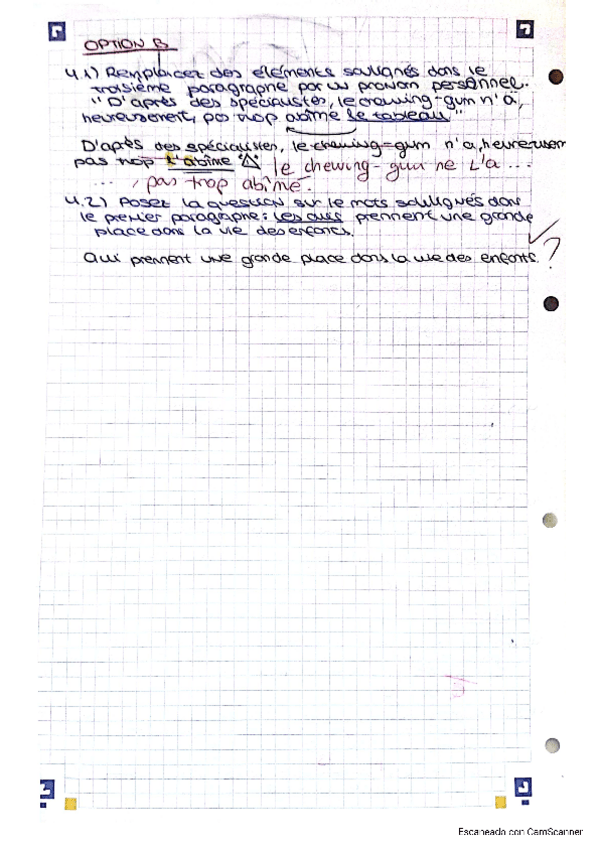 OPTION B
4.1) Remplacez des éléments soulignés dans le
troisième paragraphe par un pronom personnel.
"D'après des spécialistes, le chewing-gum n'a,
heureusement, pas trop abîmé le tableau"
D'après des spécialistes, le chewing-gum n'a, heureusem
pas trop l'abîme
le chewing-gum ne L'a ...
..., pas trop abîmé.
4.2) Posez la question sur le mots soulignés dans
le premier paragraphe: Les ... prennent une grande
place dans la vie des enfants.
Qui prennent une grande place dans la vie des enfants.
?
Escaneado con CamScanner